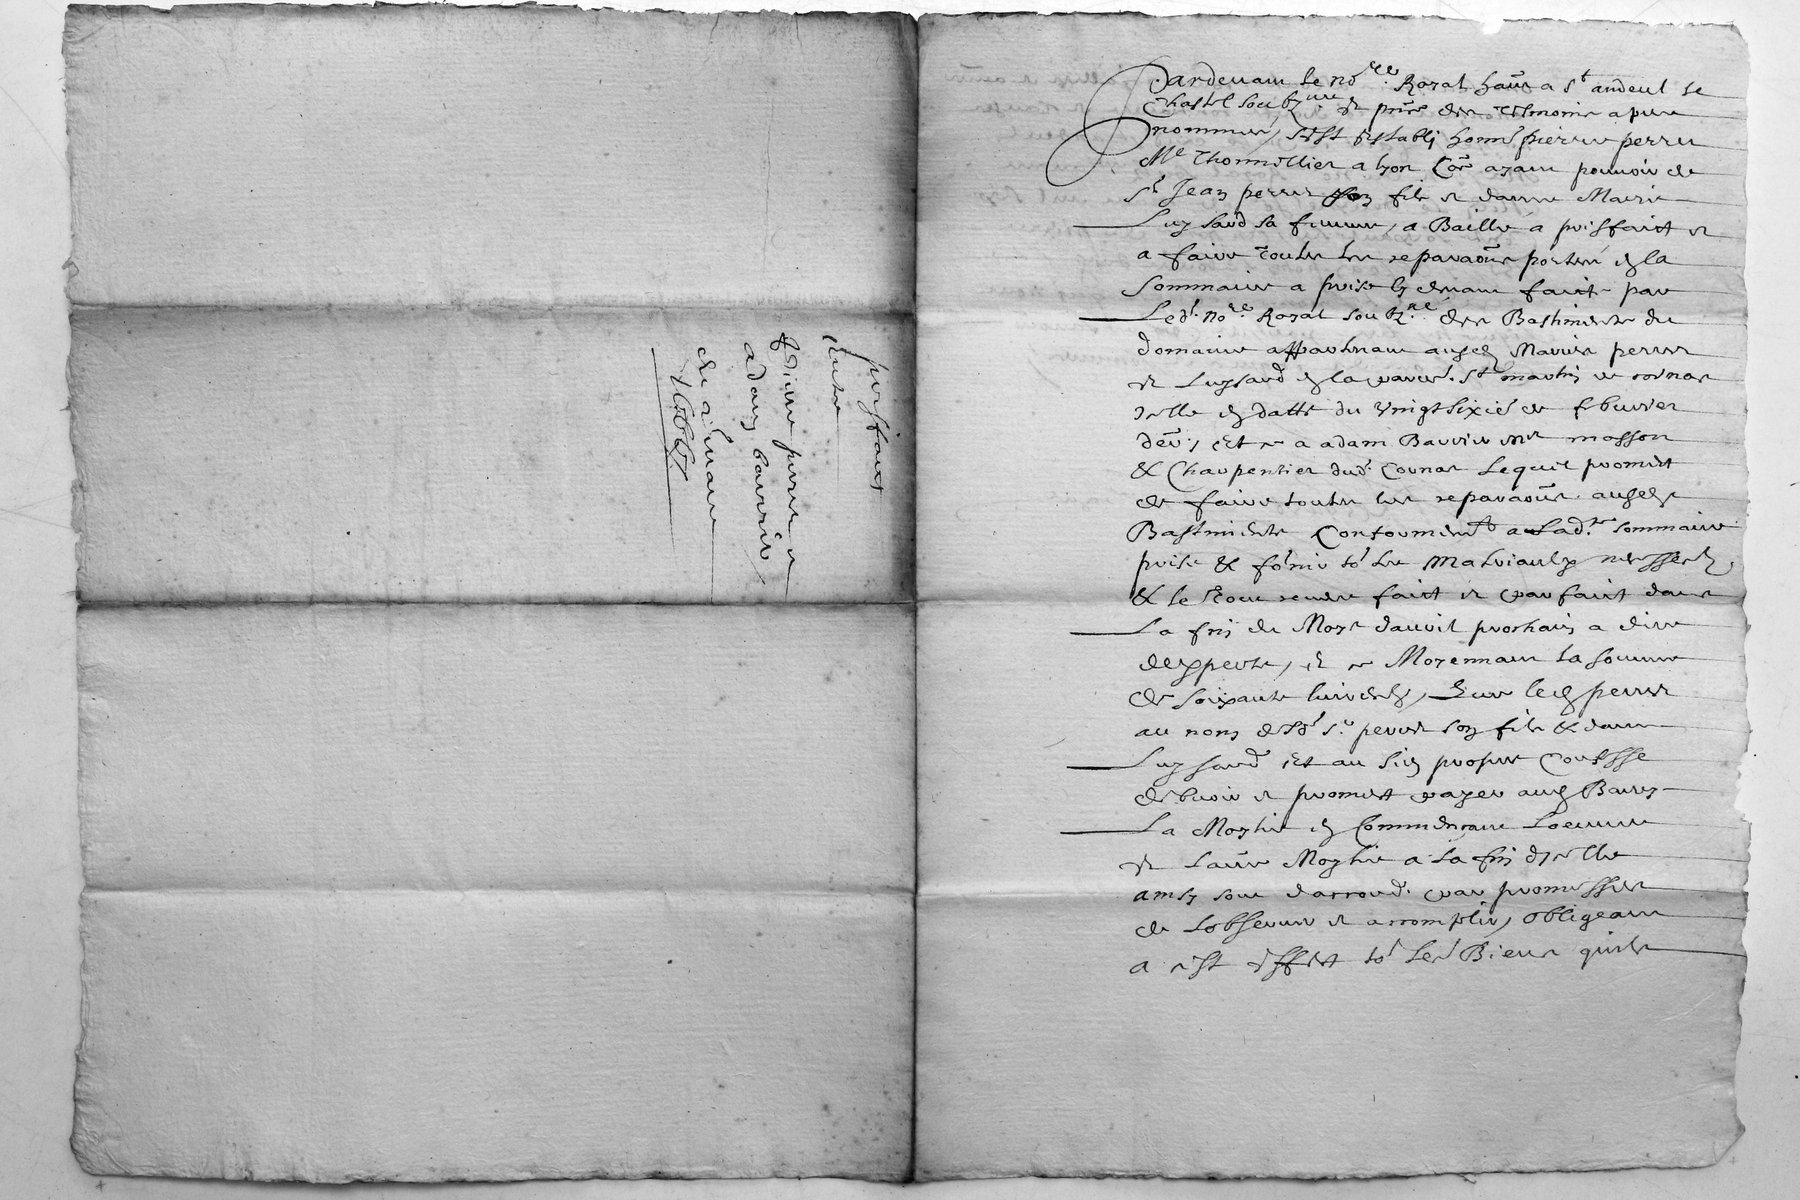 prisfaict
entre
Pierre perret et
adam bauvir
du
1666
Pardevant le no.re Royal hañt a s.t andeul le
Chastel soubz.né et pñs des tesmoins apres
nommes, s'est establj honn.e pierre perret
M.e Thonnellier a lyon Coe ayant pouvoir de
s.r Jean perret son filz et dame Marie
Luysard sa femme, a Baille a prisfaict et
a faire toutes les reparaoñs portees en la
sommaire a prise cy devant faicte par
Led.t no.re Royal soubz.né des Bastiments du
domaine appartenant ausd. Maries perret
et Luysard en la parr. St martin de cornas
Icelle en datte du vingtsixie de febvrier
der, Et ce a adam Bauvir m.e masson
& Charpentier dud. Cornas Lequel promet
de faire toutes les reparaoñs ausd.
Bastiments Conformem.t a Lad.te sommaire
prise & fornir to.s les Materiaulx necess.es
& le tout rendre faict et parfaict dans
La fin du Moys davril prochain a dire
dexperts, et ce Moyennant la somme
de soixante livres, Que led. perret
au nom desd.s s.r perret son filz & dame
Luysard Et au sien propre Confesse
debvoir et promet payer aud. Bauvir
La Moytie en Commencant Loeuvre
et Laut.e Moytie a la fin dicelle
ainsy sont daccord. par promesses
de Lobserver et accomplir, obligeant
a cest effect to.s Les Biens quilz